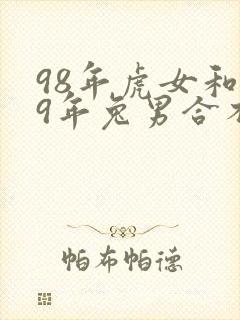 98年虎女和
9年兔男合不
帕布帕德